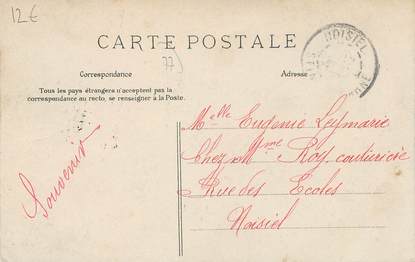 12€
CARTE POSTALE
77
NOISIEL
Correspondance
Adresse
Tous les pays étrangers n'acceptent pas la
correspondance au recto, se renseigner à la Poste.
Souvenir
Melle Eugenie Leymarie
Chez Mme Roy, couturière
Rue des Ecoles
Noisiel